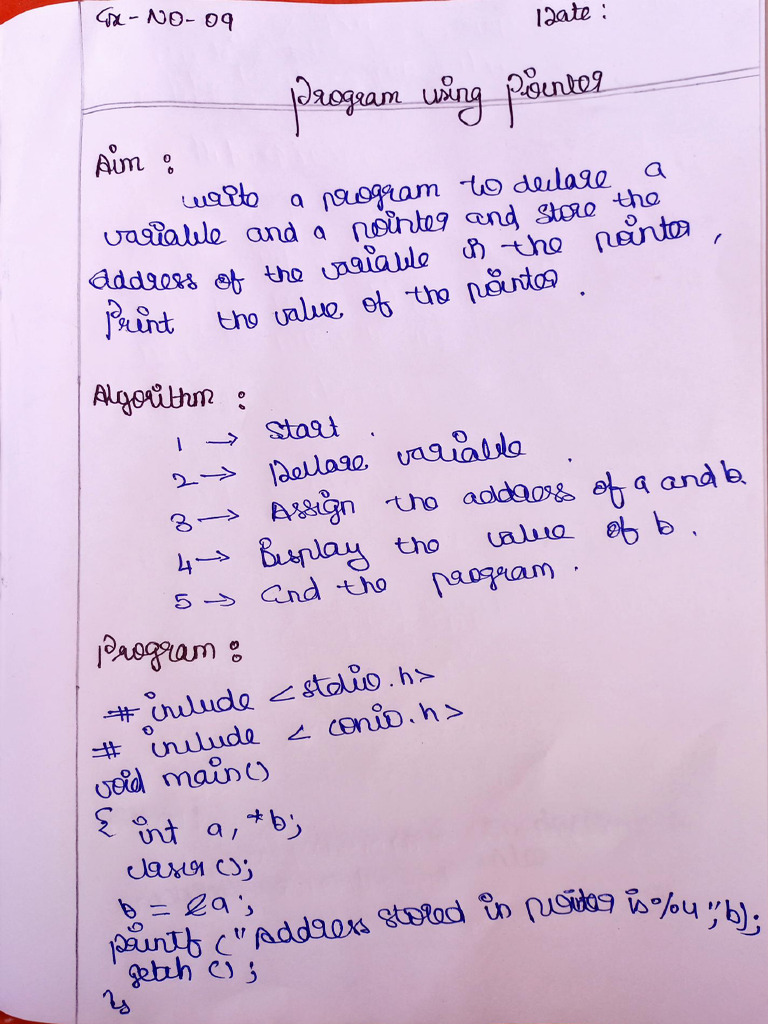 Ex-NO-09
Date:
Program using Pointer
Aim :
write a program to declare a
variable and a pointer and store the
address of the variable in the pointer,
Print the value of the pointer.
Algorithm :
1 → Start.
2 → Declare variable.
3 → Assign the address of a and b
4 → Display the value of b.
5 → End the program.
Program :
# include <stdio.h>
# include < conio.h>
void main()
{ int a, *b;
clrscr();
b = &a;
printf ("Address stored in pointer is %u", b);
getch ();
}